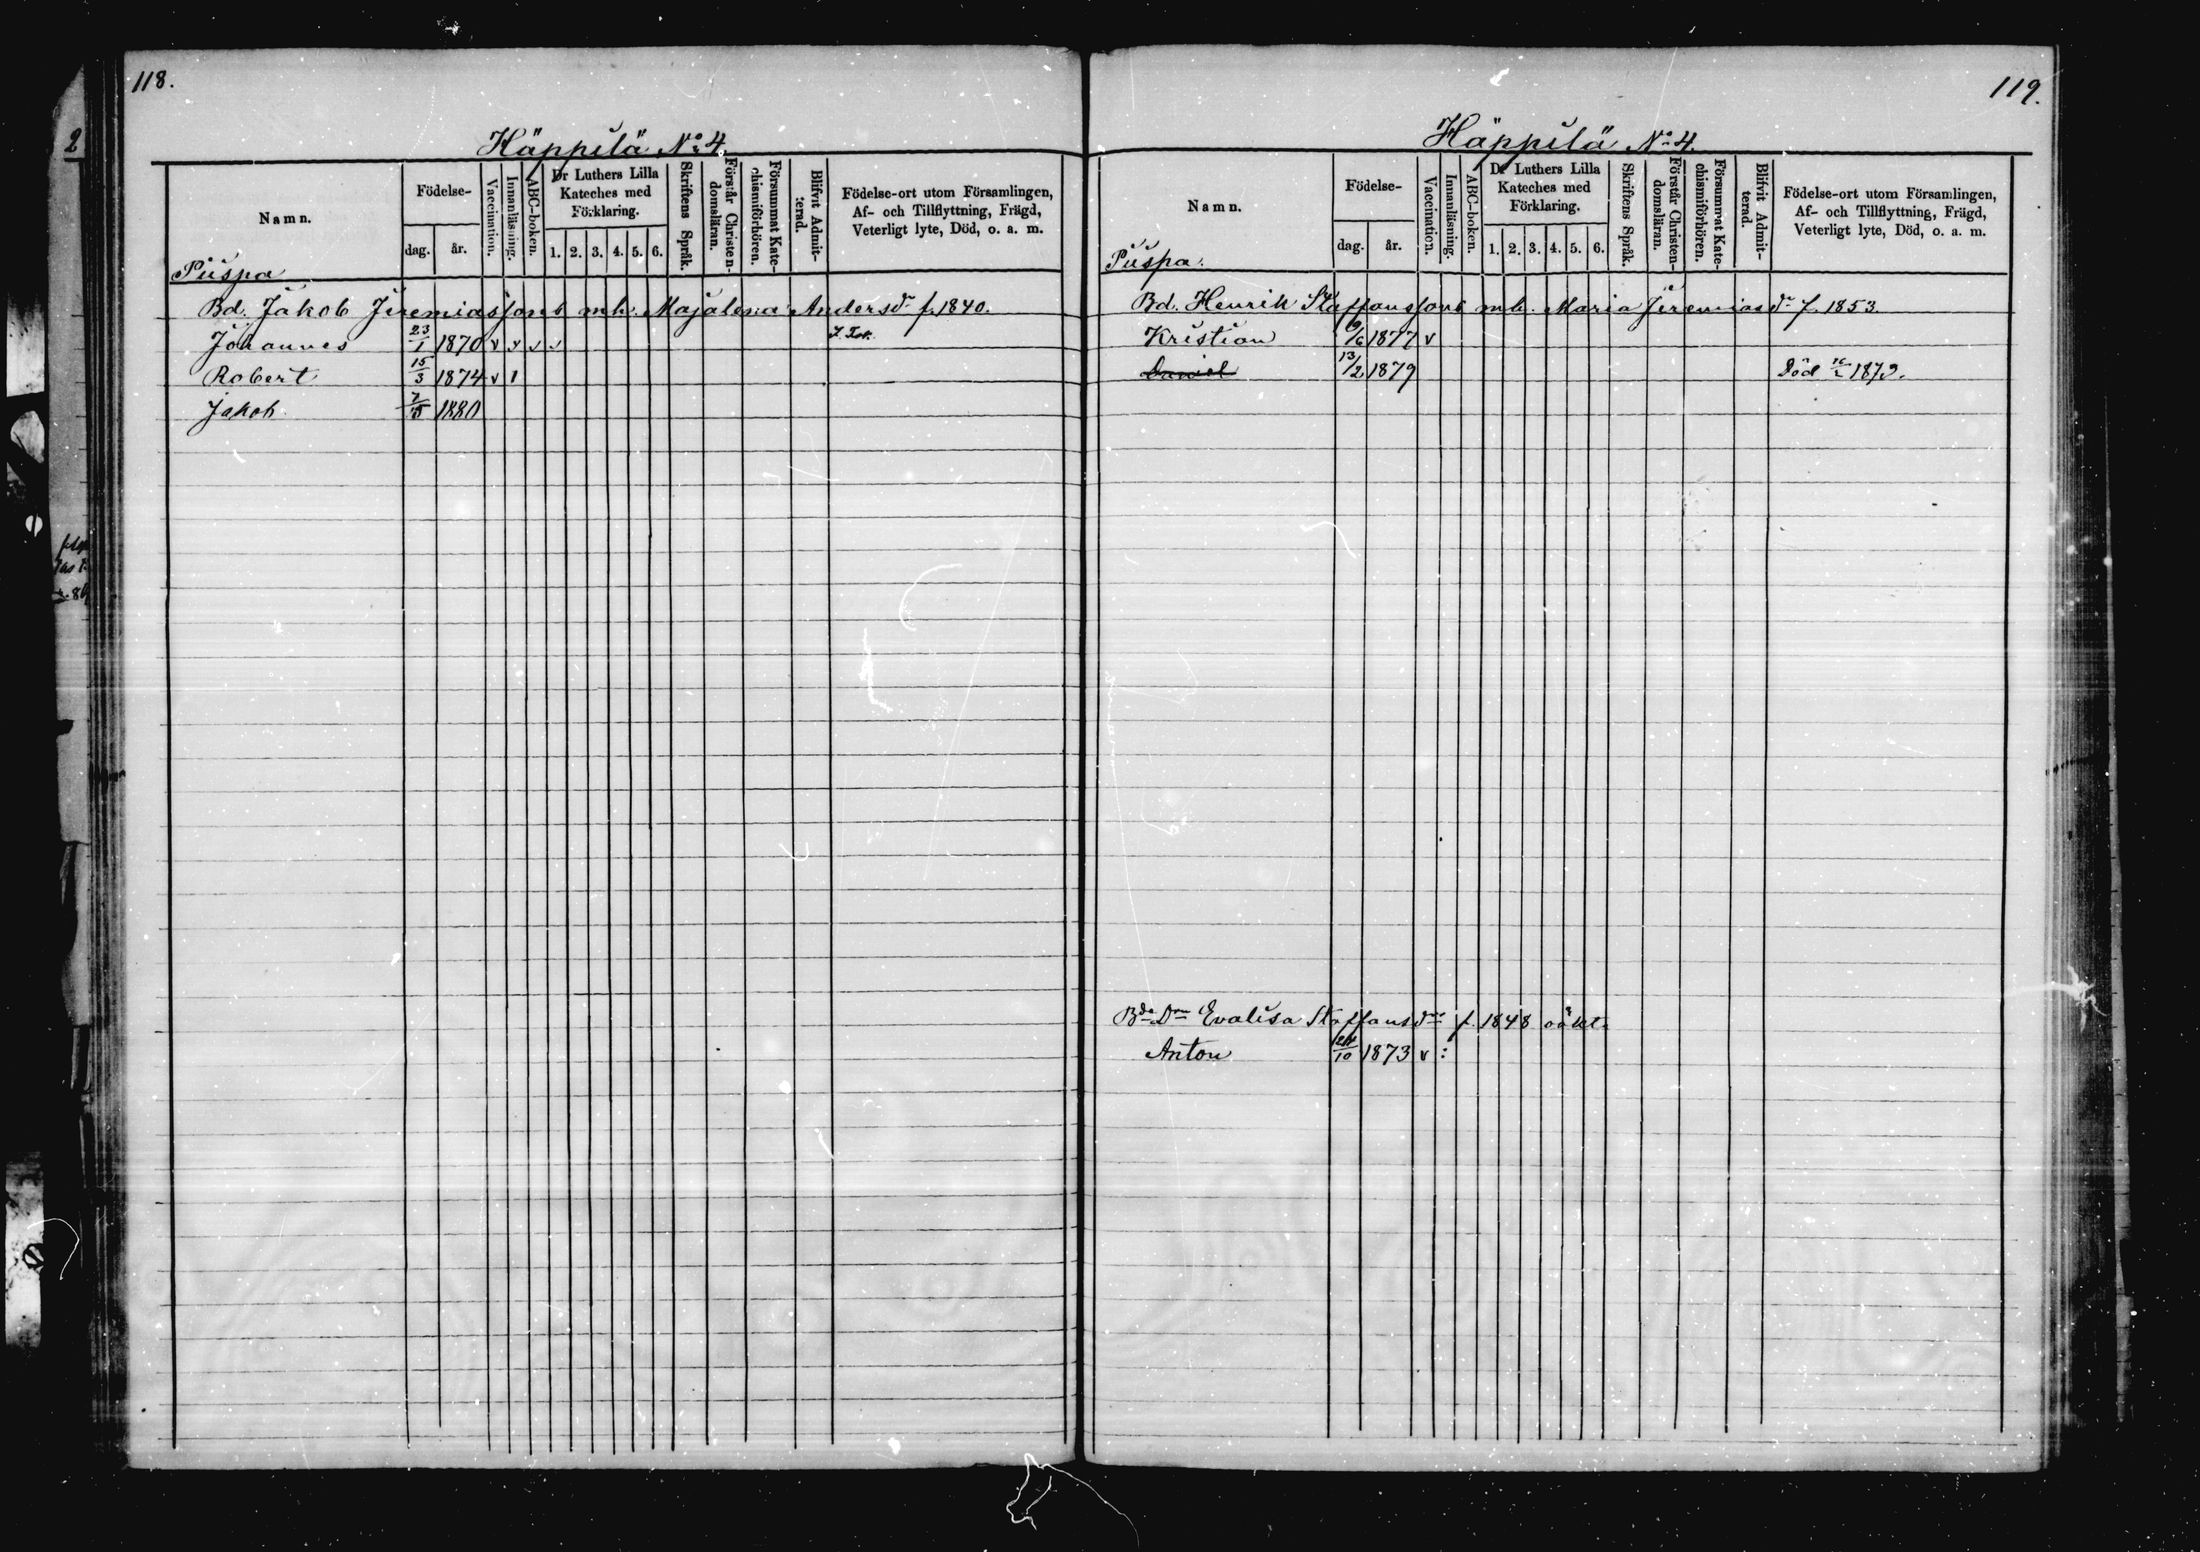 118.
Häppilä No 4.
Namn.
Födelse-
dag.
år.
Vaccination.
Innanläsning.
ABC-boken.
Dr Luthers Lilla
Kateches med
Förklaring.
1. 2. 3. 4. 5. 6.
Skriftens Språk.
Förstår Christen-
domsläran.
Försummat Kate-
chismiförhören.
Blifvit Admit-
terad.
Födelse-ort utom Församlingen,
Af- och Tillflyttning, Frägd,
Veterligt lyte, Död, o. a. m.
Puspa
Bd. Jakob Jeremiassons mh. Majalena Andersdr f. 1840.
Johannes 23/1 1870 v v v v
Robert 15/3 1874 v ı
Jakob 1880
119.
Häppilä No 4.
Namn.
Födelse-
dag.
år.
Vaccination.
Innanläsning.
ABC-boken.
Dr Luthers Lilla
Kateches med
Förklaring.
1. 2. 3. 4. 5. 6.
Skriftens Språk.
Förstår Christen-
domsläran.
Försummat Kate-
chismiförhören.
Blifvit Admit-
terad.
Födelse-ort utom Församlingen,
Af- och Tillflyttning, Frägd,
Veterligt lyte, Död, o. a. m.
Puspa.
Bd. Henrik Staffanssons mh. Maria Jeremiasdr f. 1853.
Kristian 9/6 1877 v
Daniel 13/2 1879 Död 1879.
Bde Drn Evalisa Staffansdrs f. 1848 oäkt.
Anton 1873 v :